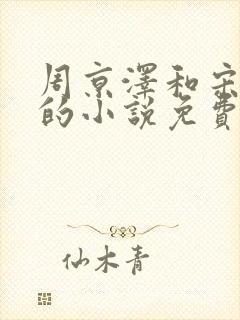 周京澤和宋
的小說免費
仙木青